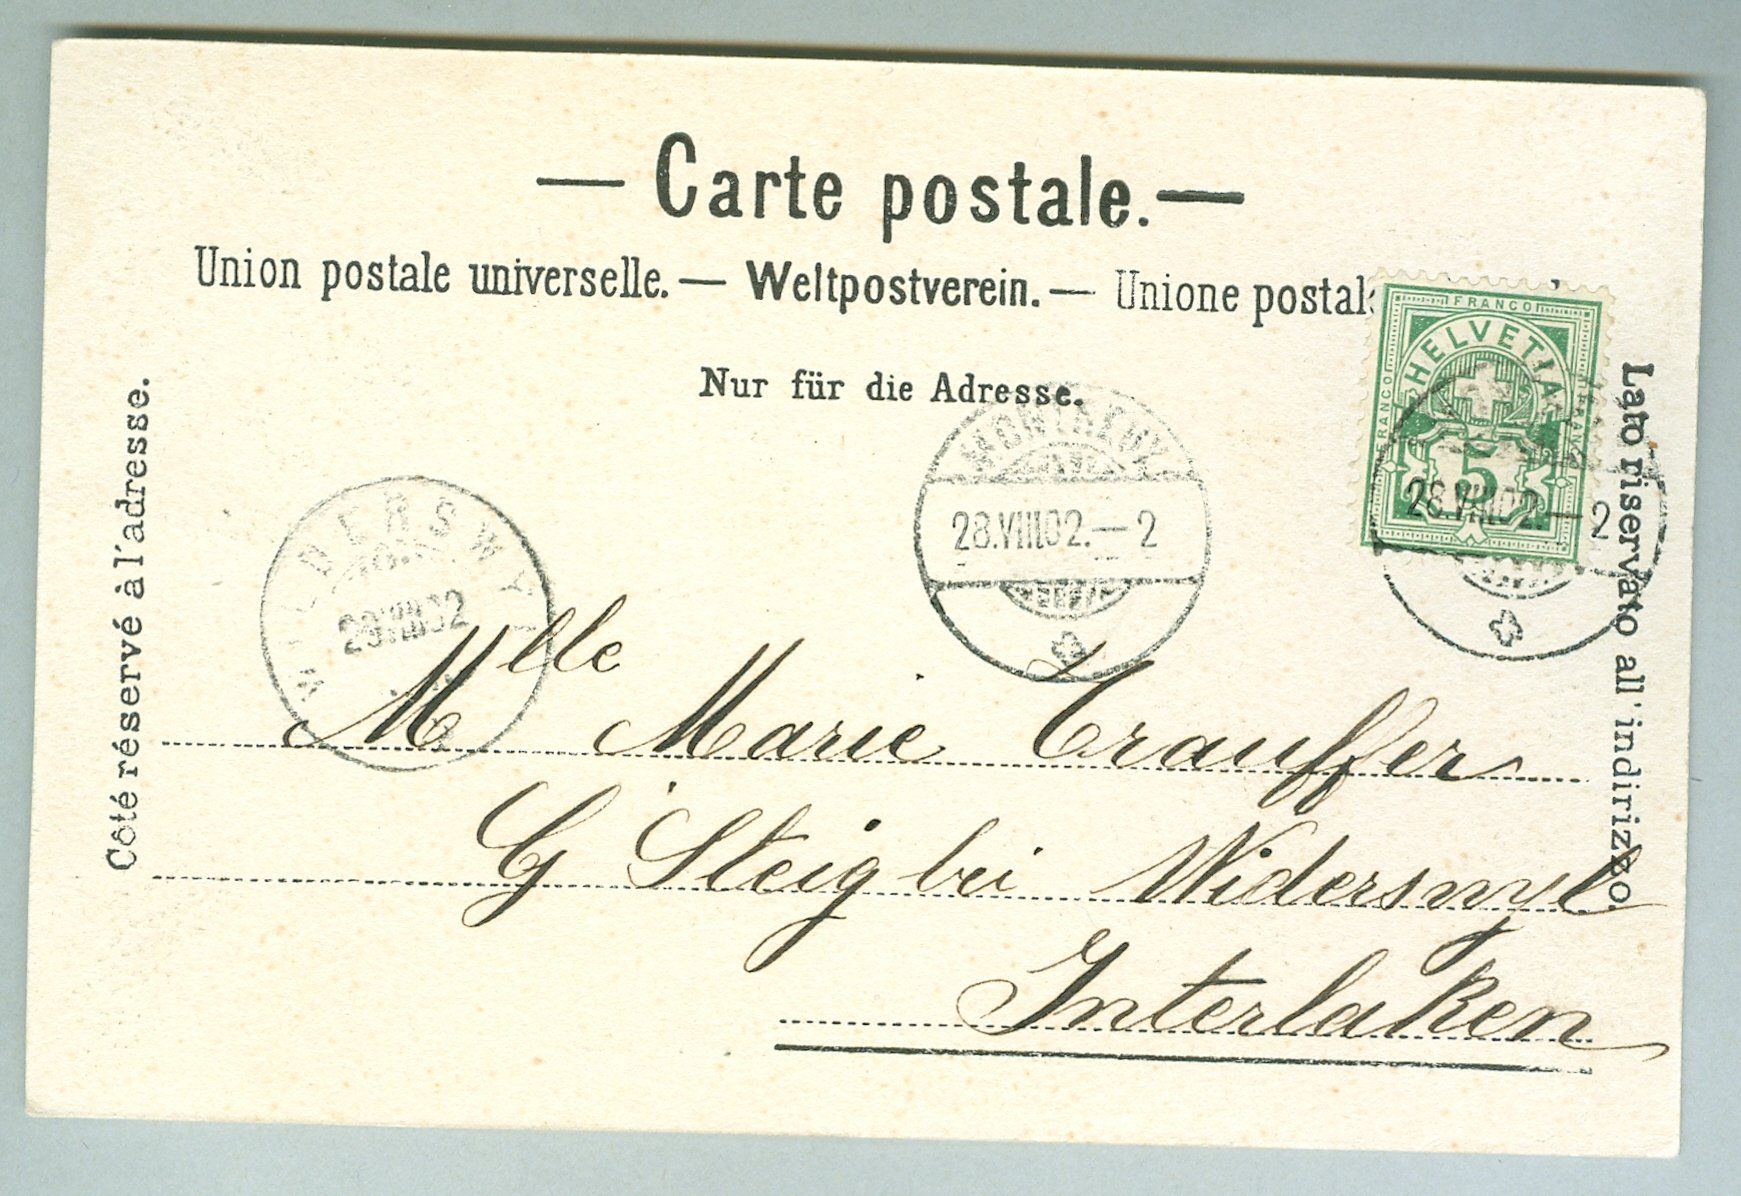 — Carte postale. —
Union postale universelle. — Weltpostverein. — Unione postal
Nur für die Adresse.
Côté réservé à l'adresse.
Lato riservato all'indirizzo.
FRANCO
HELVETIA
FRANCO
FRANCO
5
28.VIII.02.—2
MONTREUX
28.VIII.02.—2
WILDERSWYL
29.VIII.02
Mlle Marie Trauffer
G Steig bei Widerswyl
Interlaken